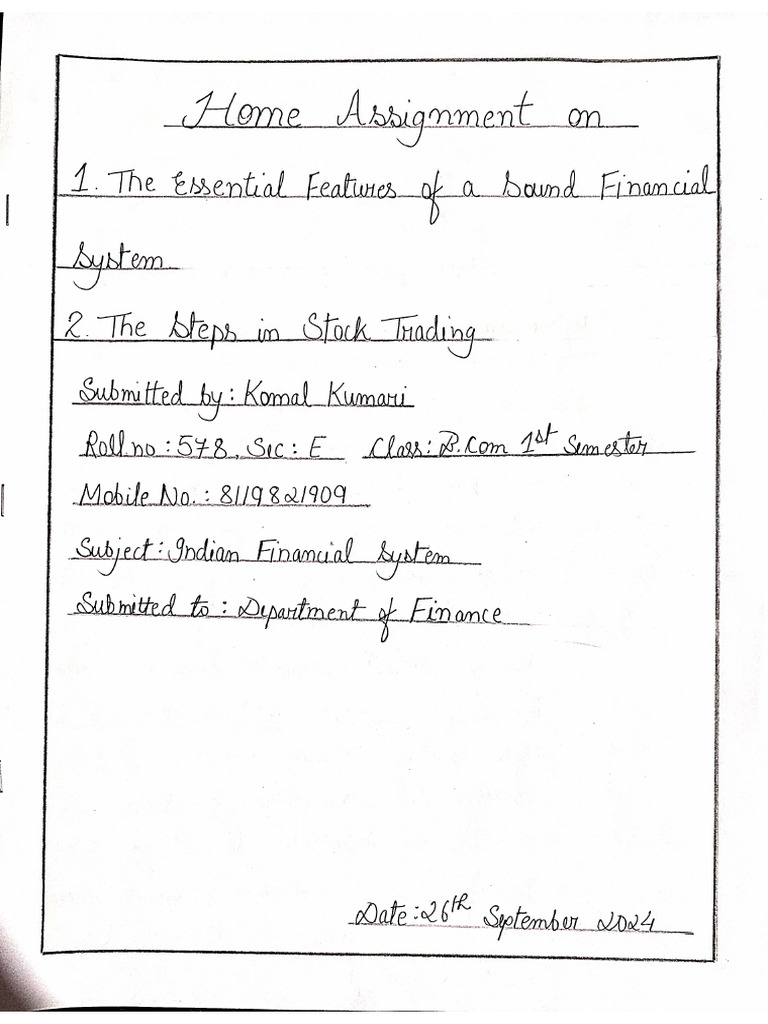 Home Assignment on
1. The Essential Features of a Sound Financial
System
2. The Steps in Stock Trading
Submitted by: Komal Kumari
Roll.no: 578, Sec: E Class: B.Com 1st Semester
Mobile No.: 8119821909
Subject: Indian Financial System
Submitted to: Department of Finance
Date: 26th September 2024